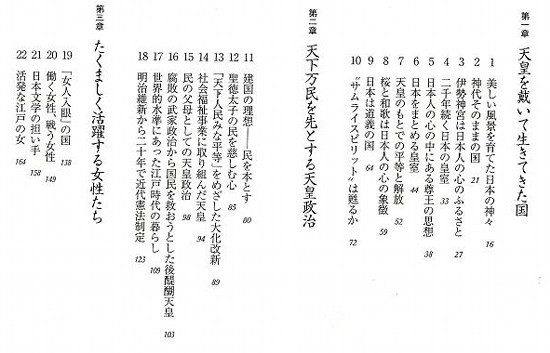 第一章 天皇を戴いて生きてきた国
1 美しい風景を育てた日本の神々 16
2 神代そのままの国 21
3 伊勢神宮は日本人の心のふるさと 27
4 二千年続く日本の皇室 33
5 日本人の心の中にある尊王の思想 38
6 日本をまとめる皇室 44
7 天皇のもとでの平等と解放 52
8 桜と和歌は日本人の心の象徴 59
9 日本は道義の国 64
10 “サムライスピリット”は甦るか 72
第二章 天下万民を先とする天皇政治
11 建国の理想――民を本とす 80
12 聖徳太子の民を慈しむ心 85
13 「天下人民みな平等」をめざした大化改新 89
14 社会福祉事業に取り組んだ天皇 94
15 民の父母としての天皇政治 98
16 腐敗の武家政治から国民を救おうとした後醍醐天皇 103
17 世界的水準にあった江戸時代の暮らし 109
18 明治維新から二十年で近代憲法制定 123
第三章 たくましく活躍する女性たち
19 「女人入眼」の国 138
20 働く女性、戦う女性 149
21 日本文学の担い手 158
22 活発な江戸の女 164